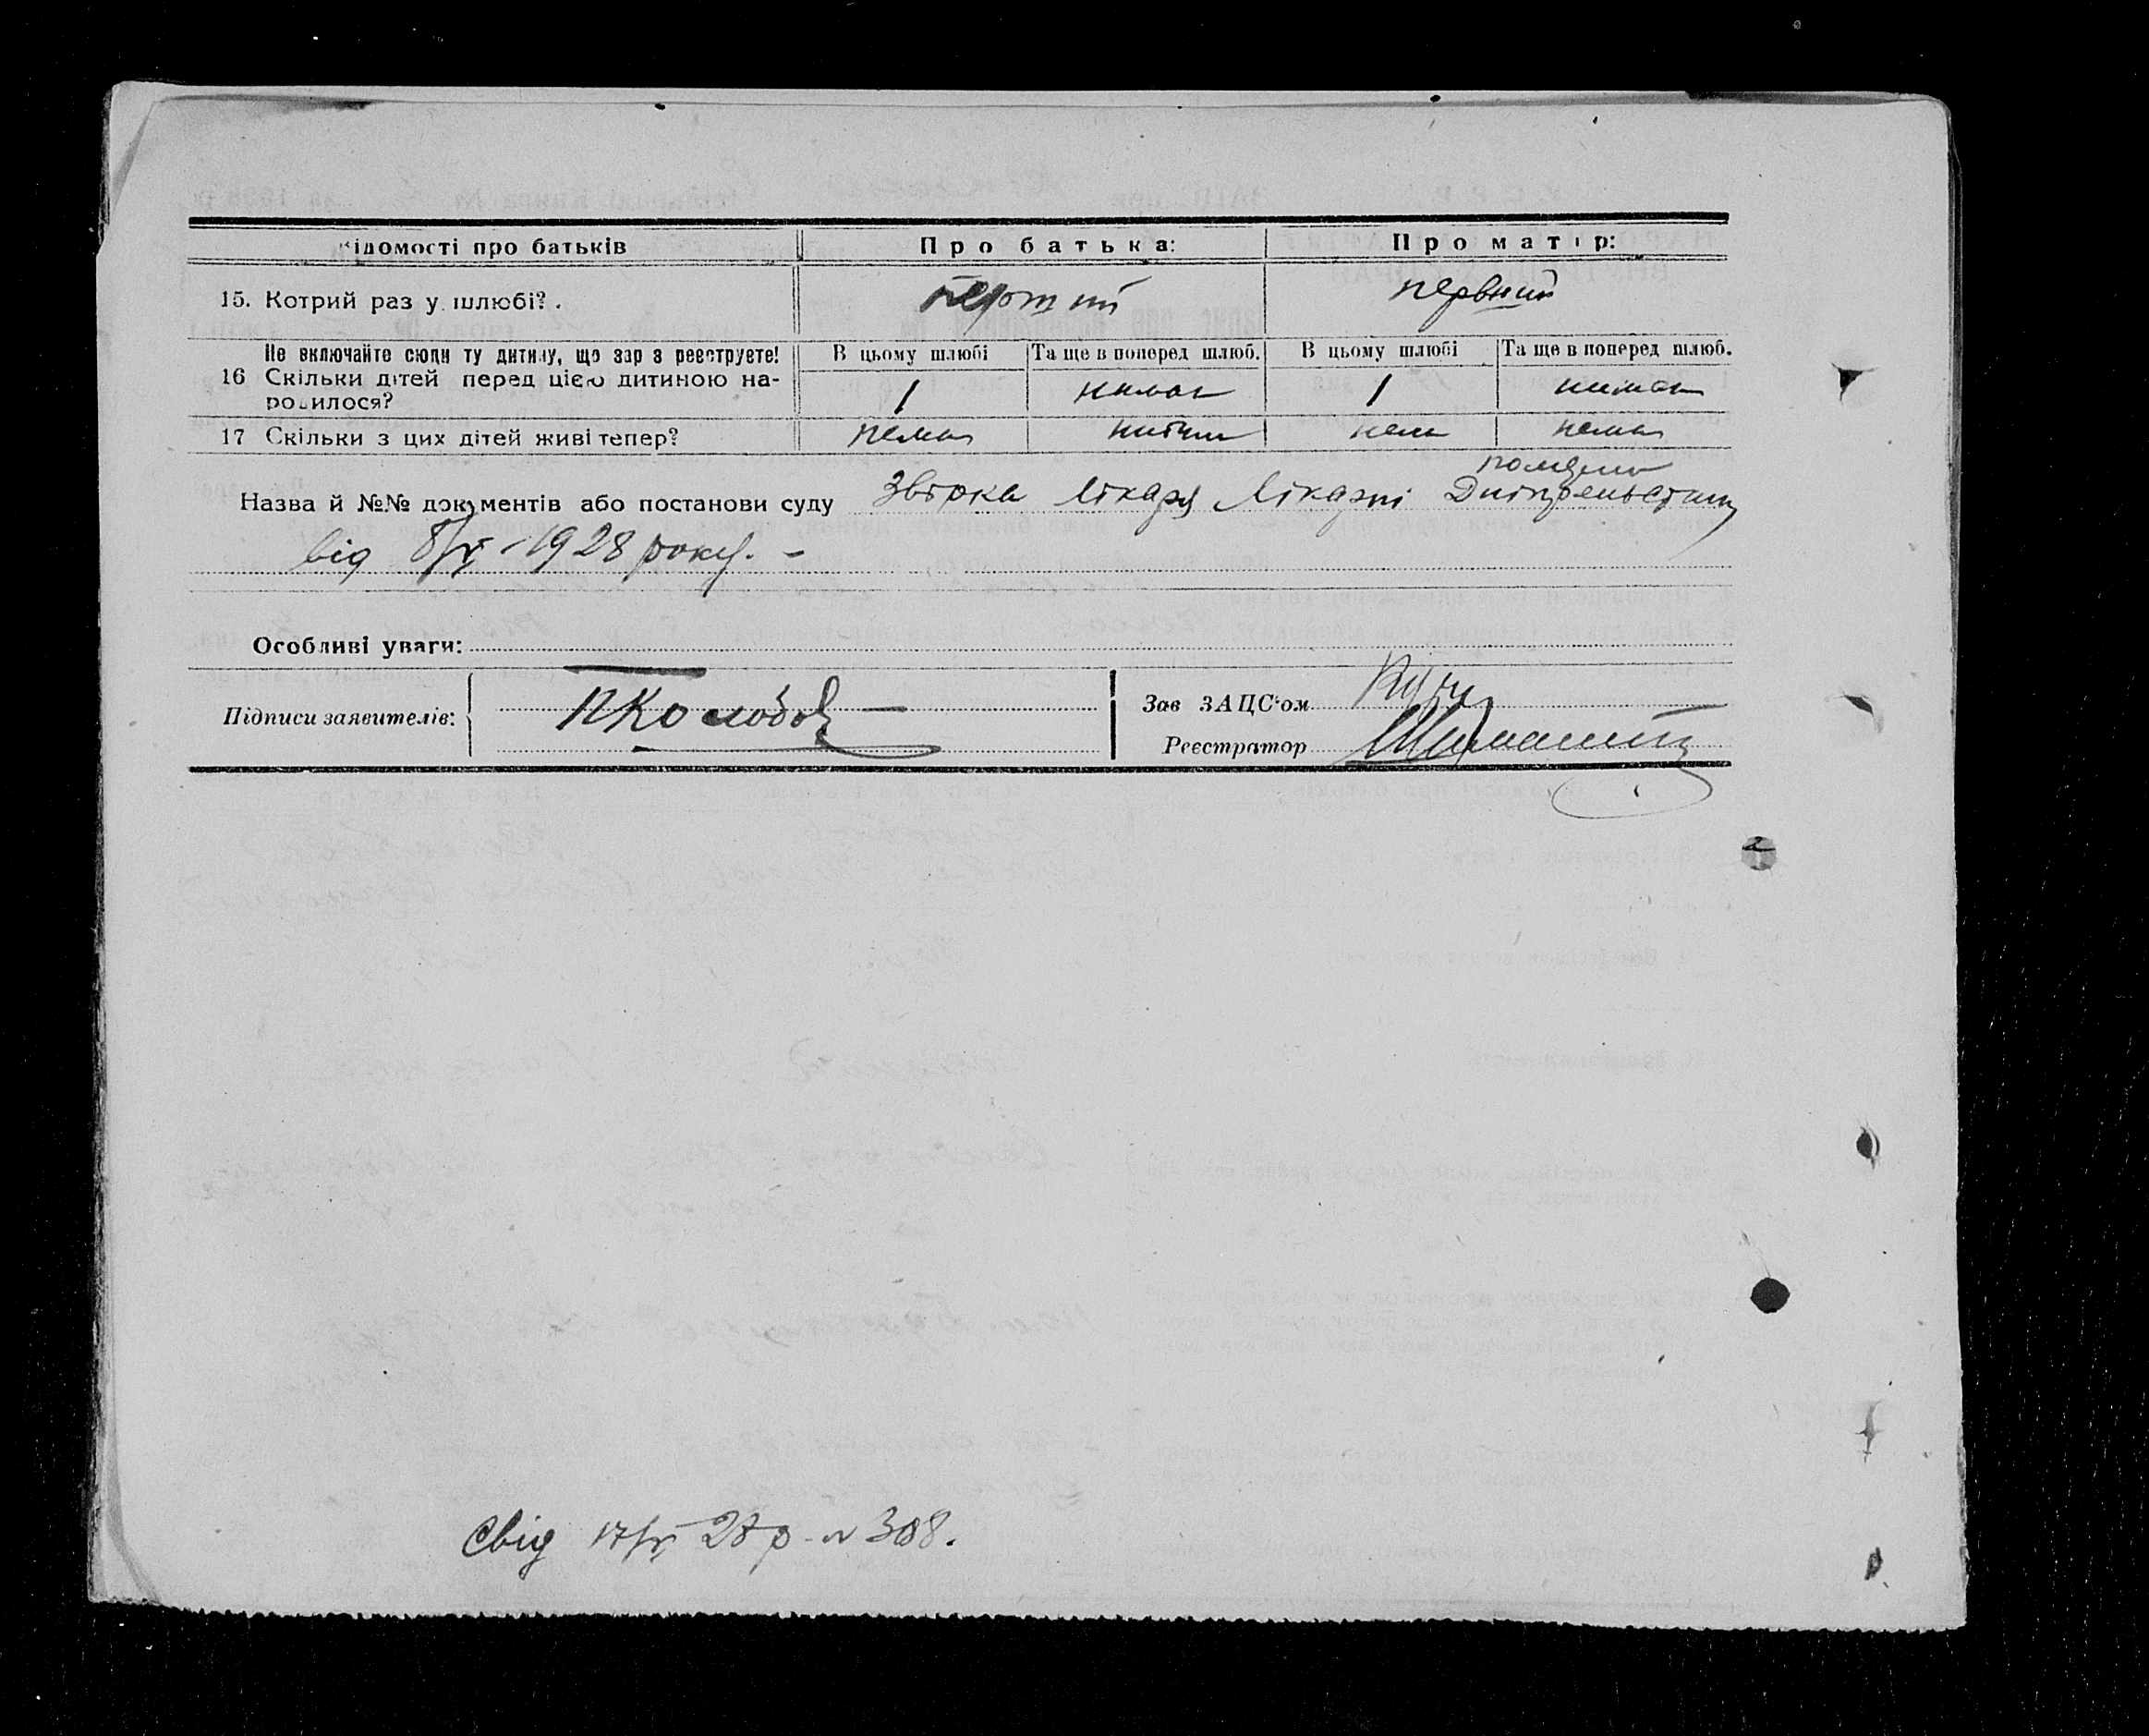 Відомості про батьків Про батька: Про матір:
15. Котрий раз у шлюбі? первший первший
Не включайте сюди ту дитину, що зараз реєструєте! В цьому шлюбі Та ще в поперед шлюб. В цьому шлюбі Та ще в поперед шлюб.
16 Скільки дітей перед цією дитиною на- 1 немає 1 немає
родилося?
17 Скільки з цих дітей живі тепер? нема нема нема
Назва й №№ документів або постанови суду Звірка лікаря Лікарні Дніпрельстану
від 8/ -1928 року. -
Особливі уваги:
Підписи заявителів: ПКолобов Зав ЗАЦС'ом
Реєстратор
Свід 17/ 28 р. № 308.